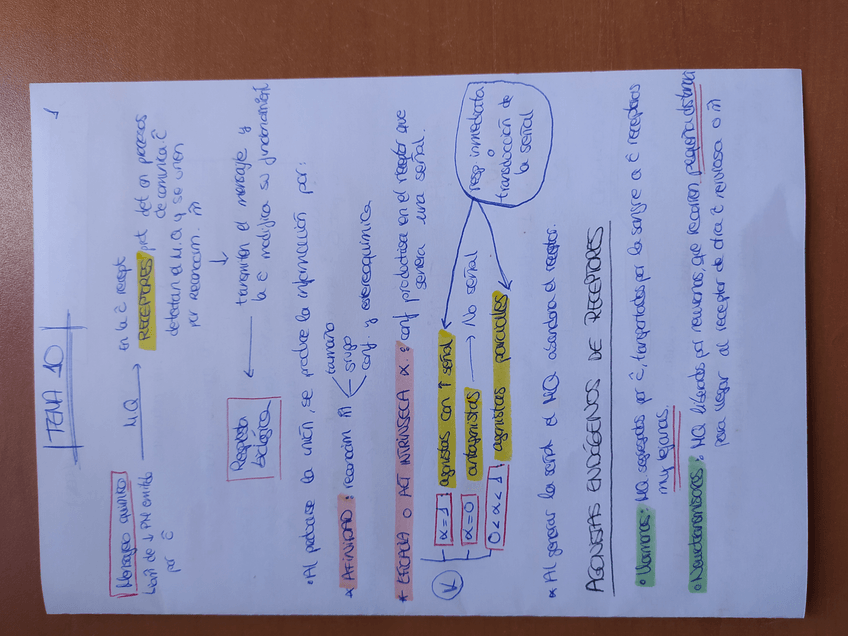 1
TEMA 10
Mensajero químico → M.Q → en la ĉ recept
leañ de ↓ PM emitido por ĉ
RECEPTORES prot det en procesos de comunica ĉ
detectan el M.Q y se unen
por reconocim. m̃
↓
Respuesta biológica ← transmiten el mensaje y
la ĉ modifica su funcionamient
• Al producirse la unión, se produce la información por:
* AFINIDAD: reconocim m̃ < tamaño
grupo
conf. y estereoquímica
* EFICACIA O ACT INTRÍNSECA α: conf productiva en el receptor que
genera una señal.
α = 1 agonistas con ↑ señal
α = 0 antagonistas → No señal
0 < α < 1 agonistas parciales
resp inmediata
o
transducción de
la señal
* Al generar la señal el MQ abandona el receptor.
AGONISTAS ENDÓGENOS DE RECEPTORES
• Hormonas: MQ segregados por ĉ, transportados por la sangre a ĉ receptoras
muy lejanas.
• Neurotransmisores: MQ liberados por neuronas, que recorren pequeña distancia
para llegar al receptor de otra ĉ nerviosa o m̃